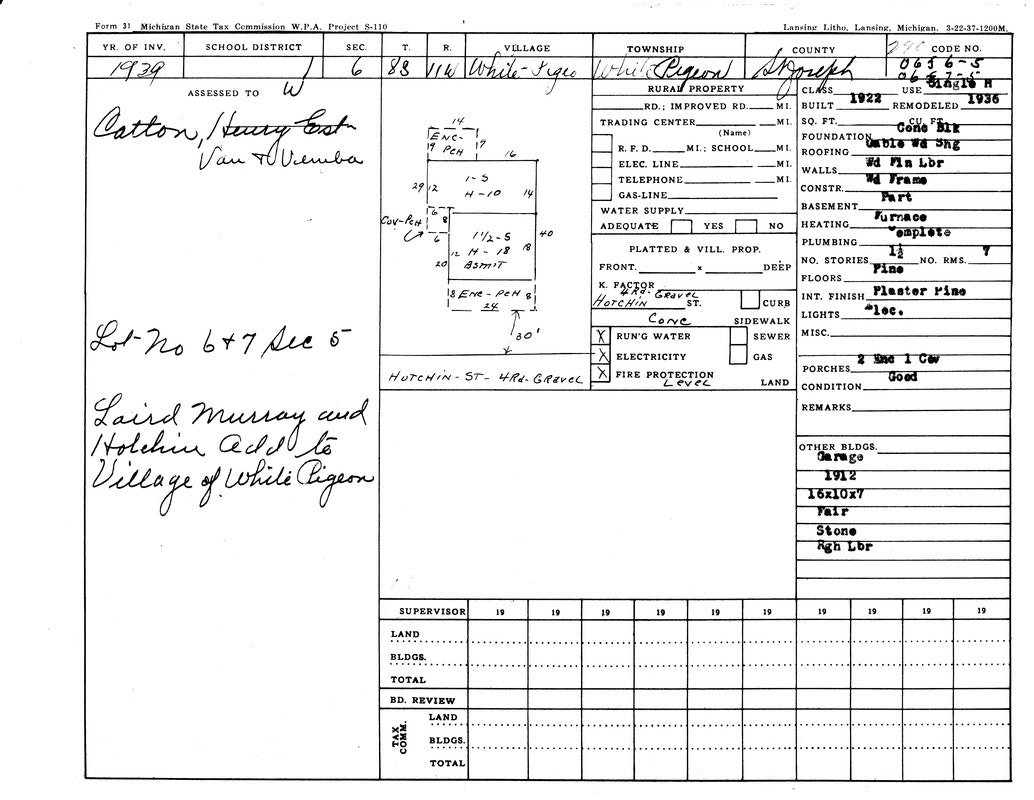 Form 31 Michigan State Tax Commission W.P.A. Project S-110
Lansing Litho, Lansing, Michigan. 3-22-37-1200M.
YR. OF INV. SCHOOL DISTRICT SEC. T. R. VILLAGE TOWNSHIP COUNTY CODE NO.
1939 1 6 8S 11W White-Pigeo White Pigeon St Joseph 0656-5
ASSESSED TO W
Catton, Henry Est
Van & Viemba
Lot No 6 & 7 Sec 5
Laird Murray and
Hotchin Add to
Village of White Pigeon
14
ENC-
PCH
9
7
16
29
12
1-S
H-10
14
COV-PCH
6
8
6
1 1/2-S
H-18
BSMIT
12
18
40
20
8 ENC-PCH 8
24
30'
HUTCHIN-ST-4Rd-GRAVEL
RURAL PROPERTY
RD.; IMPROVED RD. MI.
TRADING CENTER MI.
(Name)
R.F.D. MI.; SCHOOL MI.
ELEC. LINE MI.
TELEPHONE MI.
GAS-LINE
WATER SUPPLY
ADEQUATE YES NO
PLATTED & VILL. PROP.
FRONT. x DEEP
K. FACTOR
4Rd-Gravel
HUTCHIN ST. CURB
Conc SIDEWALK
X RUN'G WATER SEWER
X ELECTRICITY GAS
X FIRE PROTECTION
Level LAND
CLASS USE Single H
BUILT 1922 REMODELED 1936
SQ. FT. CU. FT.
FOUNDATION Conc Blk
ROOFING Gable Wd Shg
WALLS Wd Fin Lbr
CONSTR. Wd Frame
BASEMENT Part
HEATING Furnace
PLUMBING Complete
NO. STORIES 1½ NO. RMS. 7
FLOORS Pine
INT. FINISH Plaster Pine
LIGHTS Elec.
MISC.
PORCHES 2 Enc 1 Cov
CONDITION Good
REMARKS
OTHER BLDGS.
Garage
1912
16x10x7
Fair
Stone
Rgh Lbr
SUPERVISOR 19 19 19 19 19 19 19 19 19 19
LAND
BLDGS.
TOTAL
BD. REVIEW
TAX COMM.
LAND
BLDGS.
TOTAL